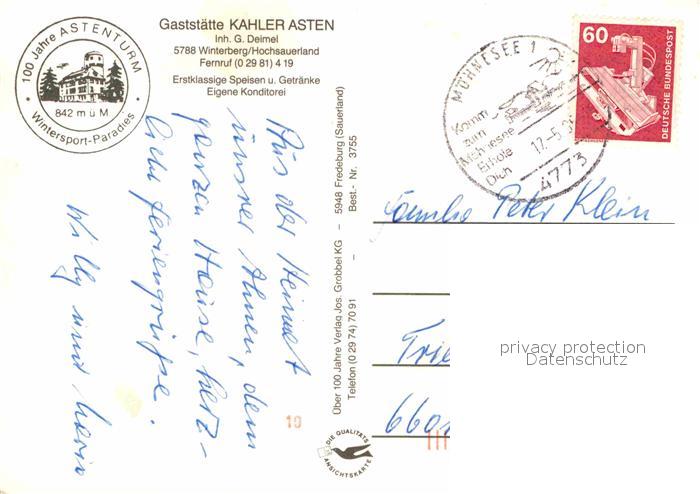 100 Jahre ASTENTURM
842 m ü M
Wintersport-Paradies
Gaststätte KAHLER ASTEN
Inh. G. Deimel
5788 Winterberg/Hochsauerland
Fernruf (0 29 81) 4 19
Erstklassige Speisen u. Getränke
Eigene Konditorei
Aus der Heimat
unsrer Ahnen, dem
ganzen Hause, herz-
liche Feriengrüße.
Willy und
10
Über 100 Jahre Verlag Jos. Grobbel KG – 5948 Fredeburg (Sauerland)
Telefon (0 29 74) 70 91 – Best.- Nr. 3755
DIE QUALITÄTS
ANSICHTSKARTE
MÖHNESEE 1
Komm
zum
Möhnesee
Erhole
Dich
17.-5.
4773
60
DEUTSCHE BUNDESPOST
Familie Peter Klein
Trie
660
privacy protection
Datenschutz